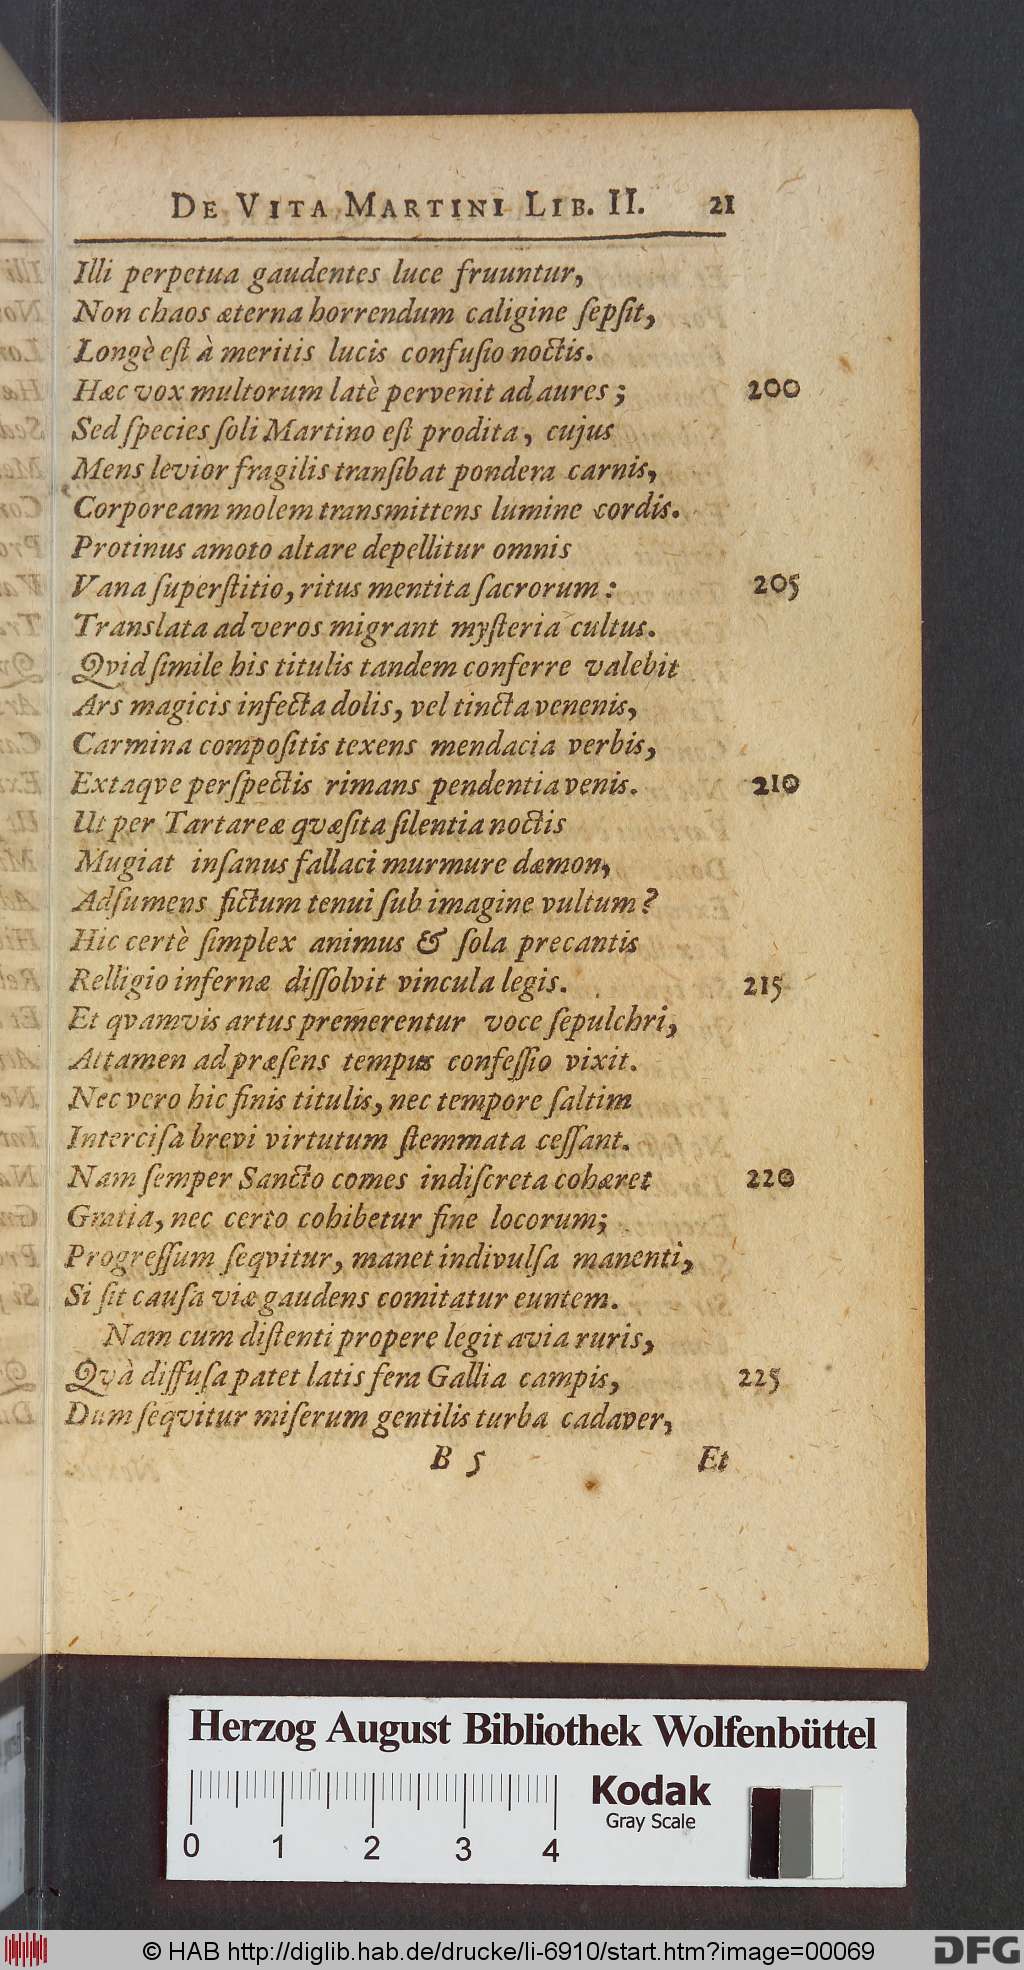 DE VITA MARTINI LIB. II. 21
Illi perpetua gaudentes luce fruuntur,
Non chaos æterna horrendum caligine ſepſit,
Longè eſt à meritis lucis confuſio noctis.
Hæc vox multorum latè pervenit ad aures; 200
Sed ſpecies ſoli Martino eſt prodita, cujus
Mens levior fragilis tranſibat pondera carnis,
Corpoream molem transmittens lumine cordis.
Protinus amoto altare depellitur omnis
Vana ſuperſtitio, ritus mentita ſacrorum: 205
Translata ad veros migrant myſteria cultus.
Qvid ſimile his titulis tandem conferre valebit
Ars magicis infecta dolis, vel tincta venenis,
Carmina compoſitis texens mendacia verbis,
Extaqve perſpectis rimans pendentia venis. 210
Ut per Tartareæ quæſita ſilentia noctis
Mugiat inſanus fallaci murmure dæmon,
Adſumens fictum tenui ſub imagine vultum?
Hic certè ſimplex animus & ſola precantis
Relligio infernæ diſſolvit vincula legis. 215
Et qvamvis artus premerentur voce ſepulchri,
Attamen ad præſens tempus confeſſio vixit.
Nec vero hic finis titulis, nec tempore ſaltim
Interciſa brevi virtutum ſtemmata ceſſant.
Nam ſemper Sancto comes indiſcreta cohæret 220
Gratia, nec certo cohibetur fine locorum;
Progreſſum ſeqvitur, manet indivulſa manenti,
Si ſit cauſa viæ gaudens comitatur euntem.
Nam cum diſtenti propere legit avia ruris,
Qvà diffuſa patet latis fera Gallia campis, 225
Dum ſeqvitur miſerum gentilis turba cadaver,
B 5 Et
Herzog August Bibliothek Wolfenbüttel
Kodak
Gray Scale
0 1 2 3 4
© HAB http://diglib.hab.de/drucke/li-6910/start.htm?image=00069
DFG